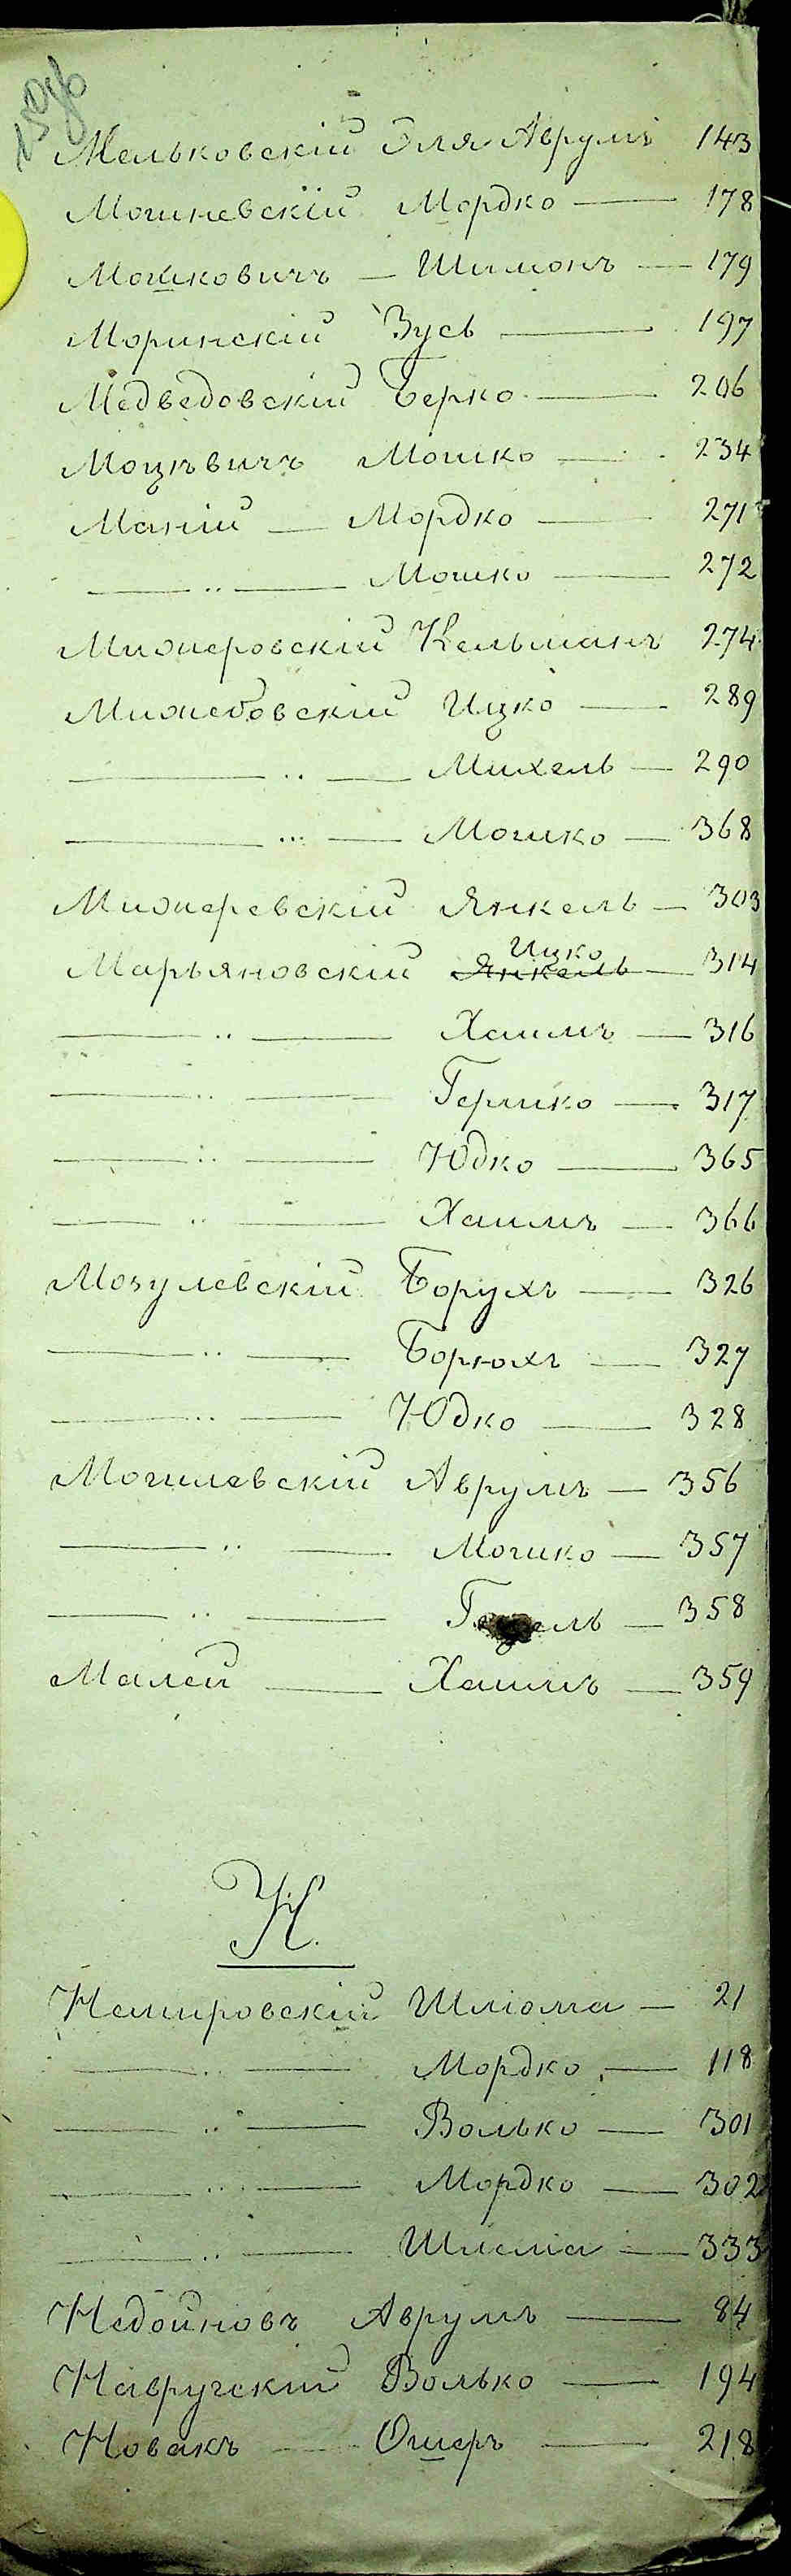 Мельковскій Эля Аврумъ 143
Мошневскій Мордко — 178
Мошковичъ — Шимонъ — 179
Моринскій Зусь — 197
Медведовскій Берко — 206
Моцѣвичъ Мошко — 234
Маній — Мордко — 271
— „ — Мошко — 272
Мижеровскій Кельманъ 274
Мижебовскій Ицко — 289
— „ — Михель — 290
— „ — Мошко — 368
Мижеревскій Янкель — 303
Ицко
Марьяновскій Янкель — 314
— „ — Хаимъ — 316
— „ — Гершко — 317
— „ — Юдко — 365
— „ — Хаимъ — 366
Мозулевскій Борухъ — 326
— „ — Борюхъ — 327
— „ — Юдко — 328
Могилевскій Аврумъ — 356
— „ — Мошко — 357
— „ — 358
Малей — Хаимъ — 359
Н.
Немировскій Шлиома — 21
— „ — Мордко — 118
— „ — Волько — 301
— „ — Мордко — 302
— „ — Шлема — 333
Недойновъ Аврумъ — 84
Навручскій Волько — 194
Новакъ — Ошеръ — 218